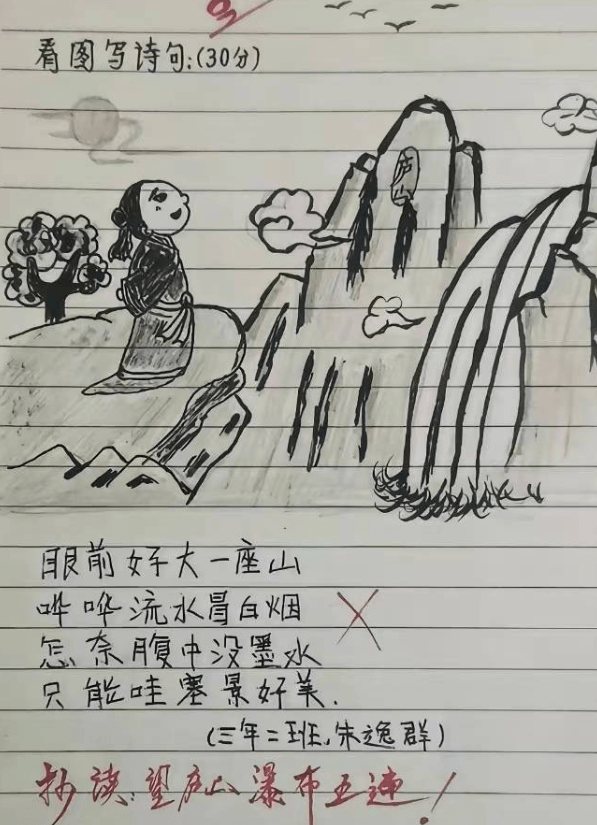 看图写诗句:(30分)
庐山
眼前好大一座山
哗哗流水冒白烟
怎奈腹中没墨水
只能哇塞景好美.
(三年二班,朱逸群)
抄读:望庐山瀑布五遍!